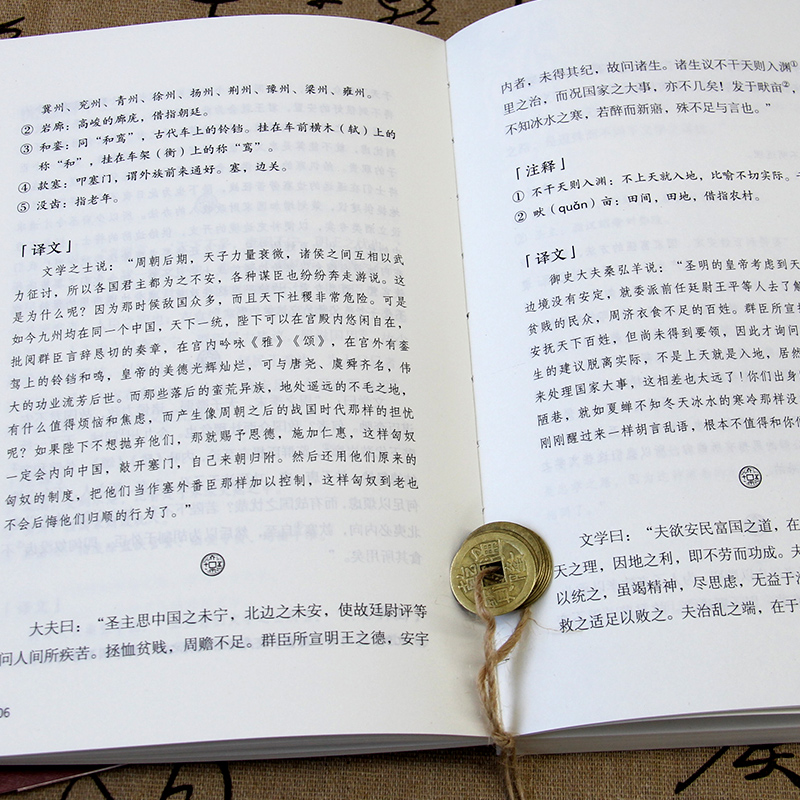 冀州、兖州、青州、徐州、扬州、荆州、豫州、梁州、雍州。
② 岩廊：高峻的廊庑，借指朝廷。
③ 和銮：同“和鸾”，古代车上的铃铛。挂在车前横木（轼）上的
称“和”，挂在车架（衡）上的称“鸾”。
④ 款塞：叩塞门，谓外族前来通好。塞，边关。
⑤ 没齿：指老年。
「译文」
文学之士说：“周朝后期，天子力量衰微，诸侯之间互相以武
力征讨，所以各国君主都为之不安，各种谋臣也纷纷奔走游说。这
是为什么呢？因为那时候敌国众多，而且天下社稷非常危险。可是
如今九州均在同一个中国，天下一统，陛下可以在宫殿内悠闲自在，
批阅群臣言辞恳切的奏章，在宫内吟咏《雅》《颂》，在宫外有銮
驾上的铃铛和鸣，皇帝的美德光辉灿烂，可与唐尧、虞舜齐名，伟
大的功业流芳后世。而那些落后的蛮荒异族，地处遥远的不毛之地，
有什么值得烦恼和焦虑，而产生像周朝之后的战国时代那样的担忧
呢？如果陛下不想抛弃他们，那就赐予恩德，施加仁惠，这样匈奴
一定会内向中国，敲开塞门，自己来朝归附。然后还用他们原来的
匈奴的制度，把他们当作塞外番臣那样加以控制，这样匈奴到老也
不会后悔他们归顺的行为了。”
大夫曰：“圣主思中国之未宁，北边之未安，使故廷尉评等
问人间所疾苦。拯恤贫贱，周赡不足。群臣所宣明王之德，安宇
06
内者，未得其纪，故问诸生。诸生议不干天则入渊①
里之治，而况国家之大事，亦不几矣！发于畎亩②
不知冰水之寒，若醉而新寤，殊不足与言也。”
「注释」
① 不干天则入渊：不上天就入地，比喻不切实际。
② 畎（quǎn）亩：田间，田地，借指农村。
「译文」
御史大夫桑弘羊说：“圣明的皇帝考虑到天
边境没有安定，就委派前任廷尉王平等人去了解
贫贱的民众，周济衣食不足的百姓。群臣所宣
安抚天下百姓，但尚未得到要领，因此才询问
生的建议脱离实际，不是上天就是入地，居然
来处理国家大事，这相差也太远了！你们出身
陋巷，就如夏蝉不知冬天冰水的寒冷那样没
刚刚醒过来一样胡言乱语，根本不值得和你们
文学曰：“夫欲安民富国之道，在
天之理，因地之利，即不劳而功成。夫
以统之，虽竭精神，尽思虑，无益于
救之适足以败之。夫治乱之端，在于